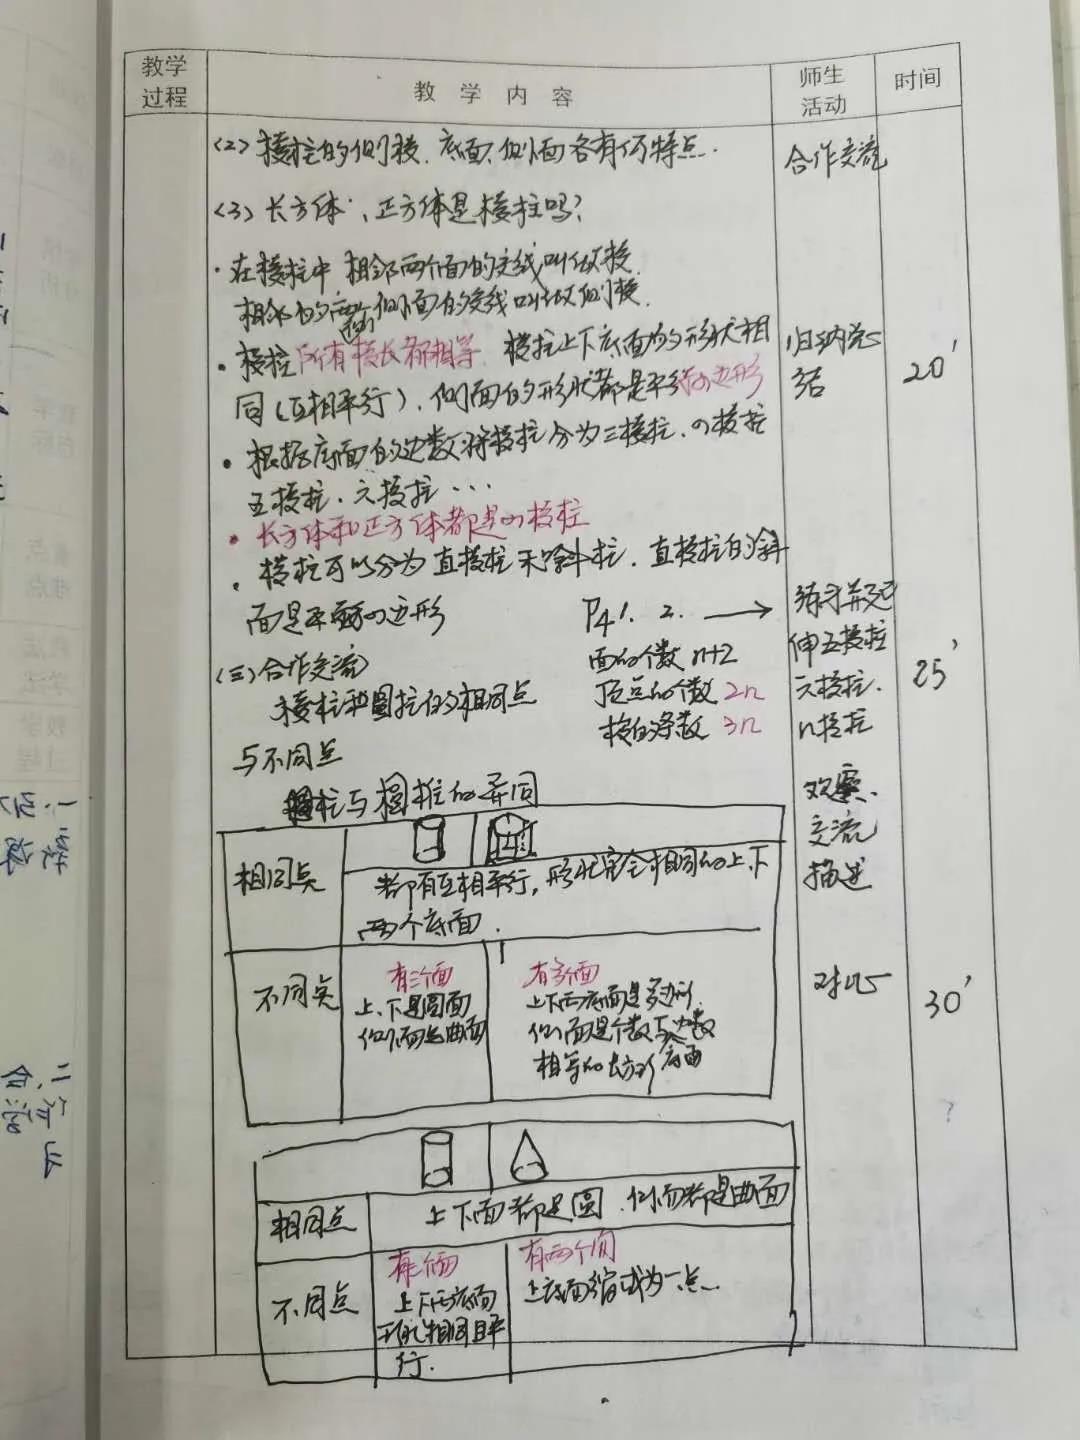 教学过程
教 学 内 容
师生活动
时间
(2) 棱柱的侧棱、底面、侧面各有何特点.
合作交流
(3) 长方体、正方体是棱柱吗?
· 在棱柱中 相邻两个面的交线叫做棱
相邻的两个侧面的交线叫做侧棱.
· 棱柱所有棱长都相等. 棱柱上下底面的形状相
归纳总
同(互相平行). 侧面的形状都是平行四边形
结
20'
· 根据底面的边数将棱柱分为三棱柱、四棱柱
五棱柱、六棱柱 ···
· 长方体和正方体都是四棱柱
· 棱柱可以分为 直棱柱和斜柱. 直棱柱的斜
面是平 四边形
P4 1. 2. →
练习并延
伸五棱柱
六棱柱.
n棱柱
25'
面的个数 n+2
顶点的个数 2n
棱的条数 3n
(三) 合作交流
棱柱和圆柱的相同点
与不同点
观察、
交流
描述
柱与圆柱的异同
相同点
都有互相平行, 形状完全相同的上、下
两个底面.
不同点
有三个面
上、下是圆面
侧面是曲面
有多个面
上下两底面是多边形.
侧面是个数与边数
相等的长方形
底面
对比
30'
相同点
上下面都是圆. 侧面都是曲面
不同点
有三个面
上下两底面
形状相同且平
行.
有两个面
上底面缩成为一点.